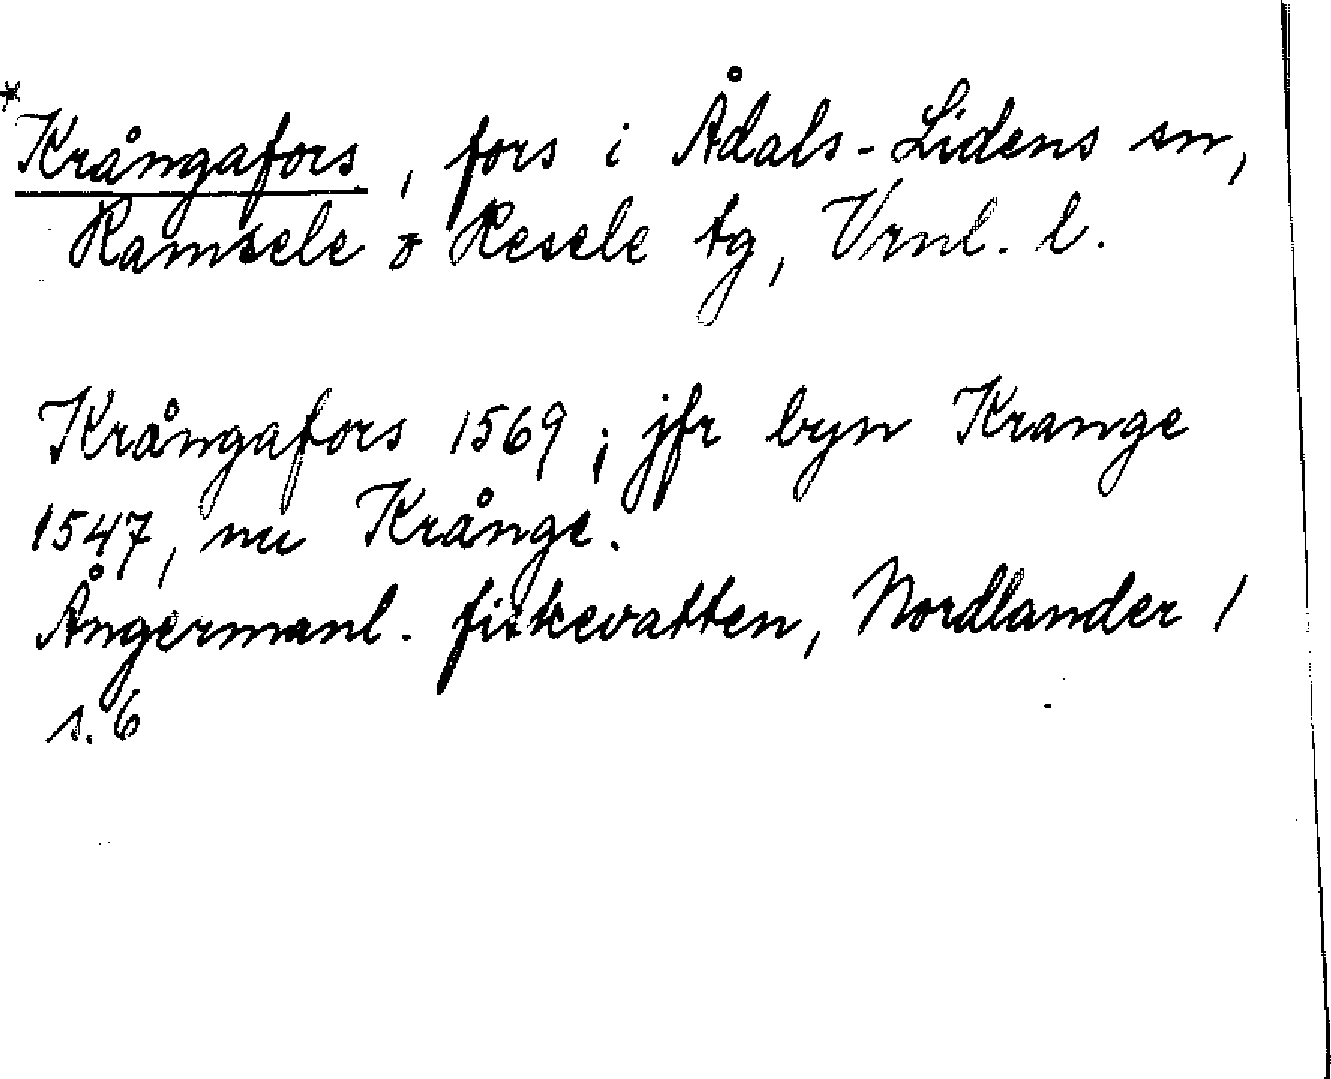 *Krångafors, fors i Ådals-Lidens sn,
Ramsele o Resele tg, Vrnl. l.
Krångafors 1569; jfr byn Krange
1547, nu Krånge.
Ångermanl. fiskevatten, Nordlander 1
s. 6